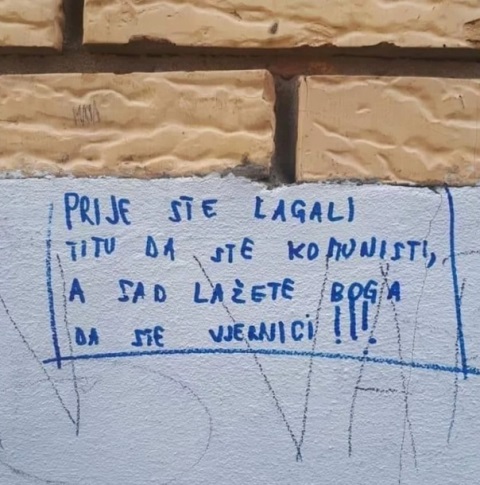 PRIJE STE LAGALI
TITU DA STE KOMUNISTI,
A SAD LAŽETE BOGA
DA STE VJERNICI !!!